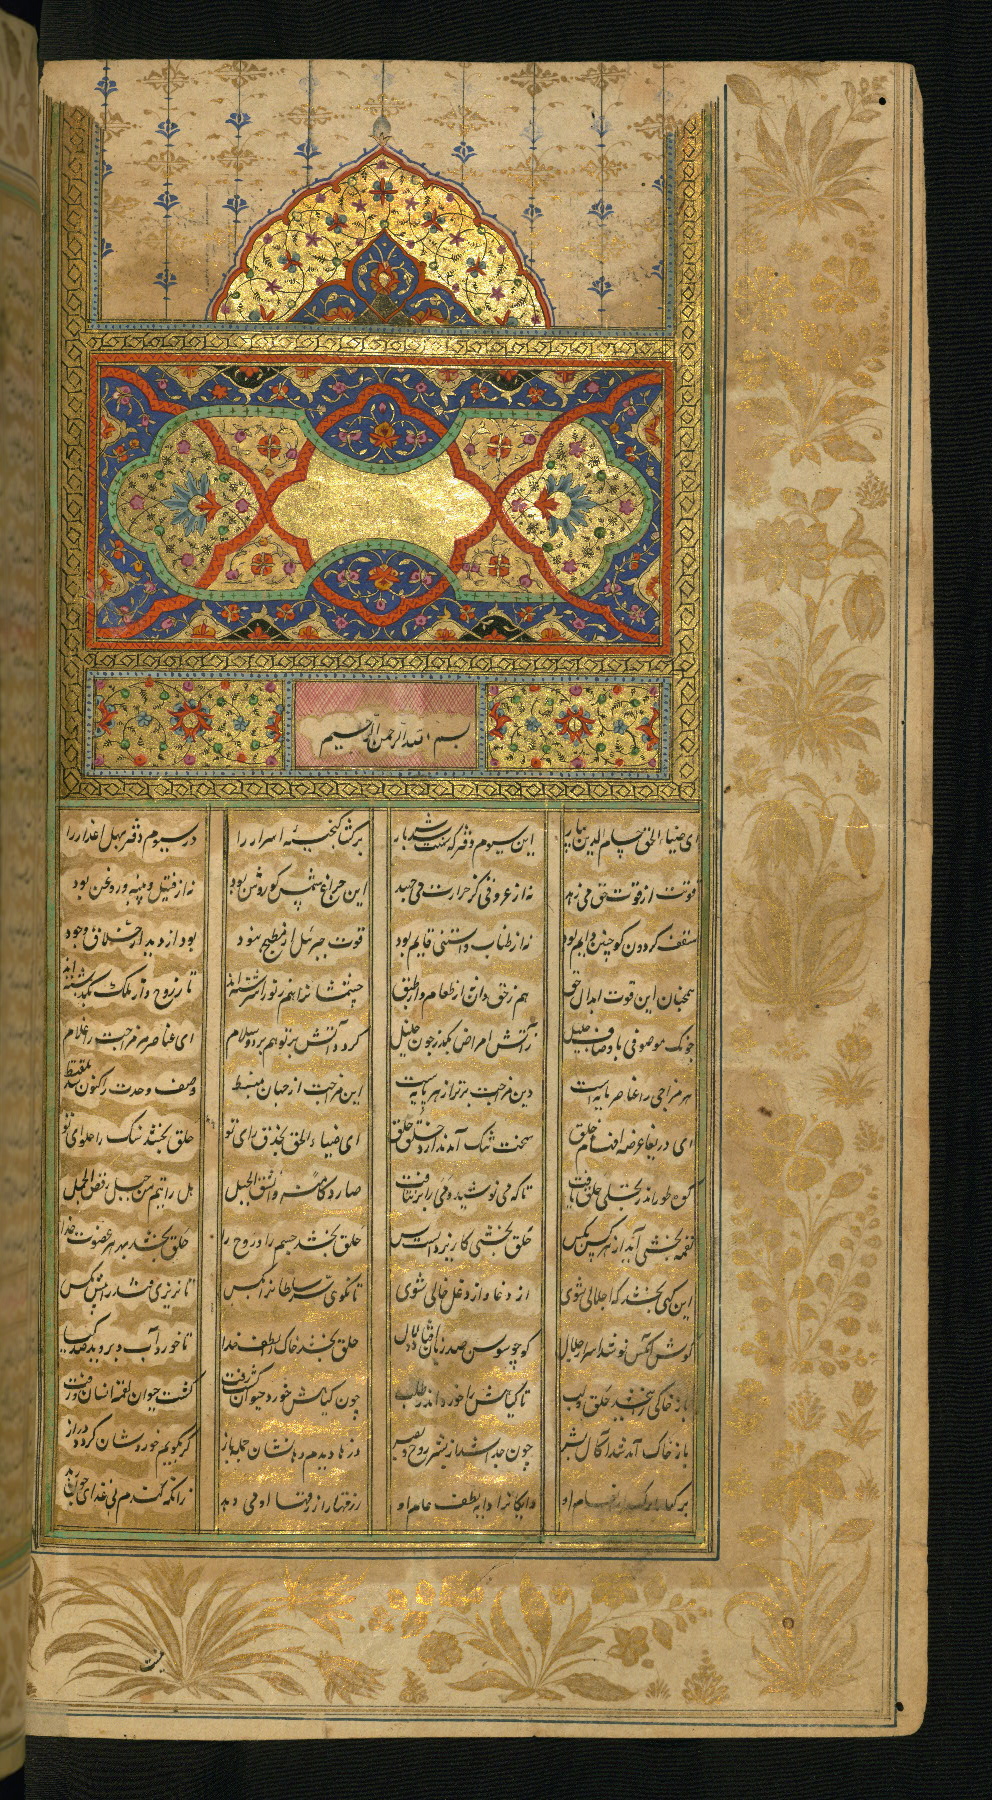 بسم الله الرحمن الرحیم
ای ضیاء الحق حسام الدین بیار این سیوم دفتر که سنت شد سه بار برکشا کنجینه اسرار را در سیوم دفتر بهل اعذار را
قوتت از قوت حق می زهد نه از عروقی کز حرارت می جهد این چراغ شمس کو روشن بود نه از فتیل و پنبه و روغن بود
سقف کردون کو چنین دایم بود نه از طناب و استنی قایم بود قوت جبرئل از مطبخ نبود بود از دیدار خلاق وجود
همچنان این قوت ابدال حق هم ز حق دان نه از طعام و از طبق جسمشان را هم ز نور اسرشته اند تا ز روح و از ملک بکذشته اند
چونک موصوفی باوصاف جلیل ز آتش امراض بکذر چون خلیل کردد آتش بر تو هم برد و سلام ای عناصر مر مزاجت را غلام
هر مزاجی را عناصر مایه است وین مزاجت برتر از هر پایه است این مزاجت از جهان منبسط وصف وحدت را کنون شد ملتقط
ای دریغا عرصه افهام خلق سخت تنک آمد ندارد خلق حلق ای ضیاء الحق بحذق رای تو حلق بخشد سنک را حلوای تو
کوه طور اندر تجلی حلق یافت تا که می نوشید و می را برنتافت صار دکا منه وانشق الجبل هل رایتم من جبل رقص الجمل
لقمه بخشی آید از هر کس بکس حلق بخشی کار یزدانست و بس حلق بخشد جسم را و روح را حلق بخشد بهر هر عضوت جدا
این کهی بخشد که اجلالی شوی از دغا و از دغل خالی شوی تا نکوی سر سلطان را بکس تا نریزی قند را پیش مکس
کوش آنکس نوشد اسرار جلال کو چو سوسن صد زبان افتاد و لال حلق بخشد خاک را لطف خدا تا خورد آب و بروید صد کیا
باز خاکی را ببخشد حلق و لب تا کیاهش را خورد اندر طلب چون کیاهش خورد حیوان کشت زفت کشت حیوان لقمه انسان و رفت
باز خاک آمد شد اکال بشر چون جدا شد از بشر روح و بصر ذرها دیدم دهانشان جمله باز کر بکویم خوردشان کردد دراز
برکها را برک از انعام او دایکانرا دایه لطف عام او رزقها را رزقها او می دهد زانکه کندم بی غذای چون زهد
نیست